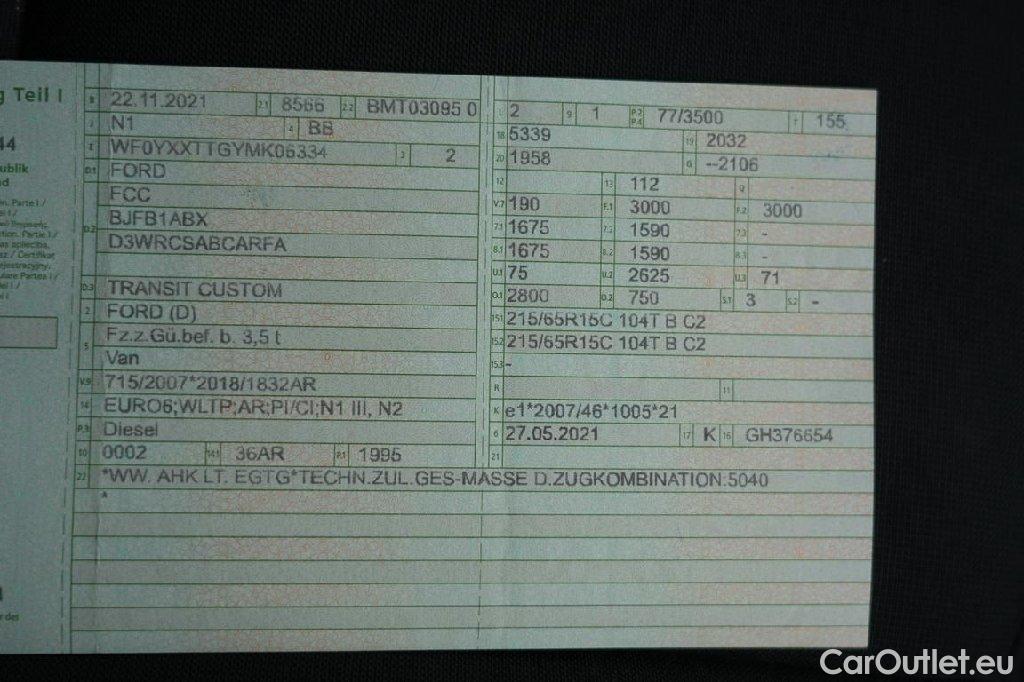 g Teil I
44
ublik
nd
B 22.11.2021 2.1 8566 2.2 BMT03095 0
J N1 4 BB
E WF0YXXTTGYMK06334 3 2
D.1 FORD
FCC
D.2 BJFB1ABX
D3WRCSABCARFA
D.3 TRANSIT CUSTOM
2 FORD (D)
5 Fz.z.Gü.bef. b. 3,5 t
Van
V.9 715/2007*2018/1832AR
14 EURO6;WLTP;AR;PI/CI;N1 III, N2
P.3 Diesel
10 0002 14.1 36AR P.1 1995
22 *WW. AHK LT. EGTG*TECHN.ZUL.GES-MASSE D.ZUGKOMBINATION:5040
*
L 2 9 1 P.2 P.4 77/3500 T 155
18 5339 19 2032
20 1958 G --2106
12 13 112 Q
V.7 190 F.1 3000 F.2 3000
7.1 1675 7.2 1590 7.3 -
8.1 1675 8.2 1590 8.3 -
U.1 75 U.2 2625 U.3 71
O.1 2800 O.2 750 S.1 3 S.2 -
15.1 215/65R15C 104T B C2
15.2 215/65R15C 104T B C2
15.3 -
R 11
K e1*2007/46*1005*21
6 27.05.2021 17 K 16 GH376654
21
CarOutlet.eu